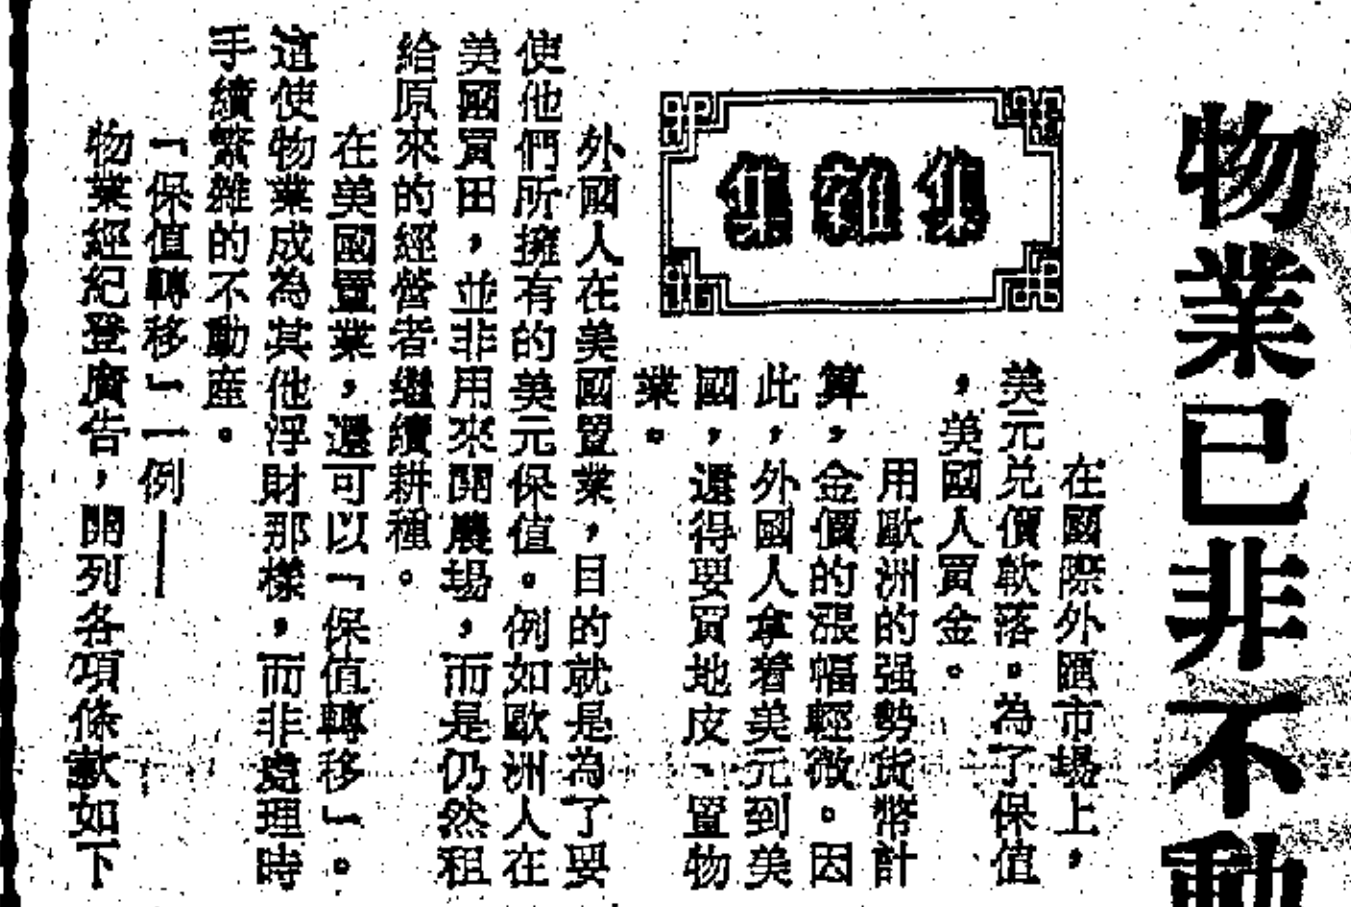 物業已非不動
集雜集
在國際外匯市場上，
美元兑價軟落。為了保值
，美國人買金。
用歐洲的强勢货幣計
算，金價的漲幅輕微。因
此，外國人拿着美元到美
國，還得要買地皮、置物
業。
外國人在美國置業，目的就是為了要
使他們所擁有的美元保值。例如歐洲人在
美國買田，並非用來開農場，而是仍然租
給原來的經營者繼續耕種。
在美國置業，還可以「保值轉移」。
這使物業成為其他浮財那樣，而非處理時
手續繁雜的不動産。
「保值轉移」一例——
物業經紀登廣告，開列各項條欵如下